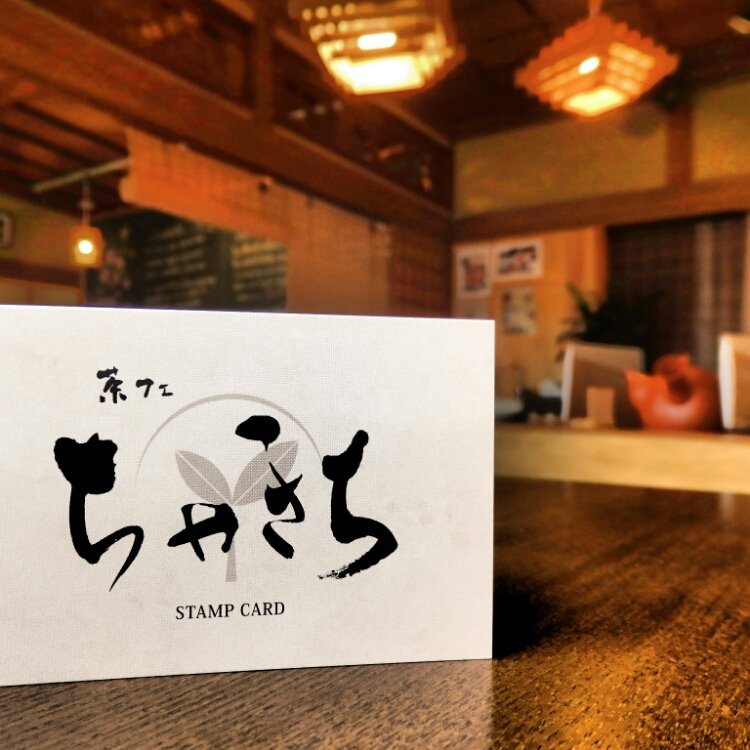 茶フェ
ちゃきち
STAMP CARD